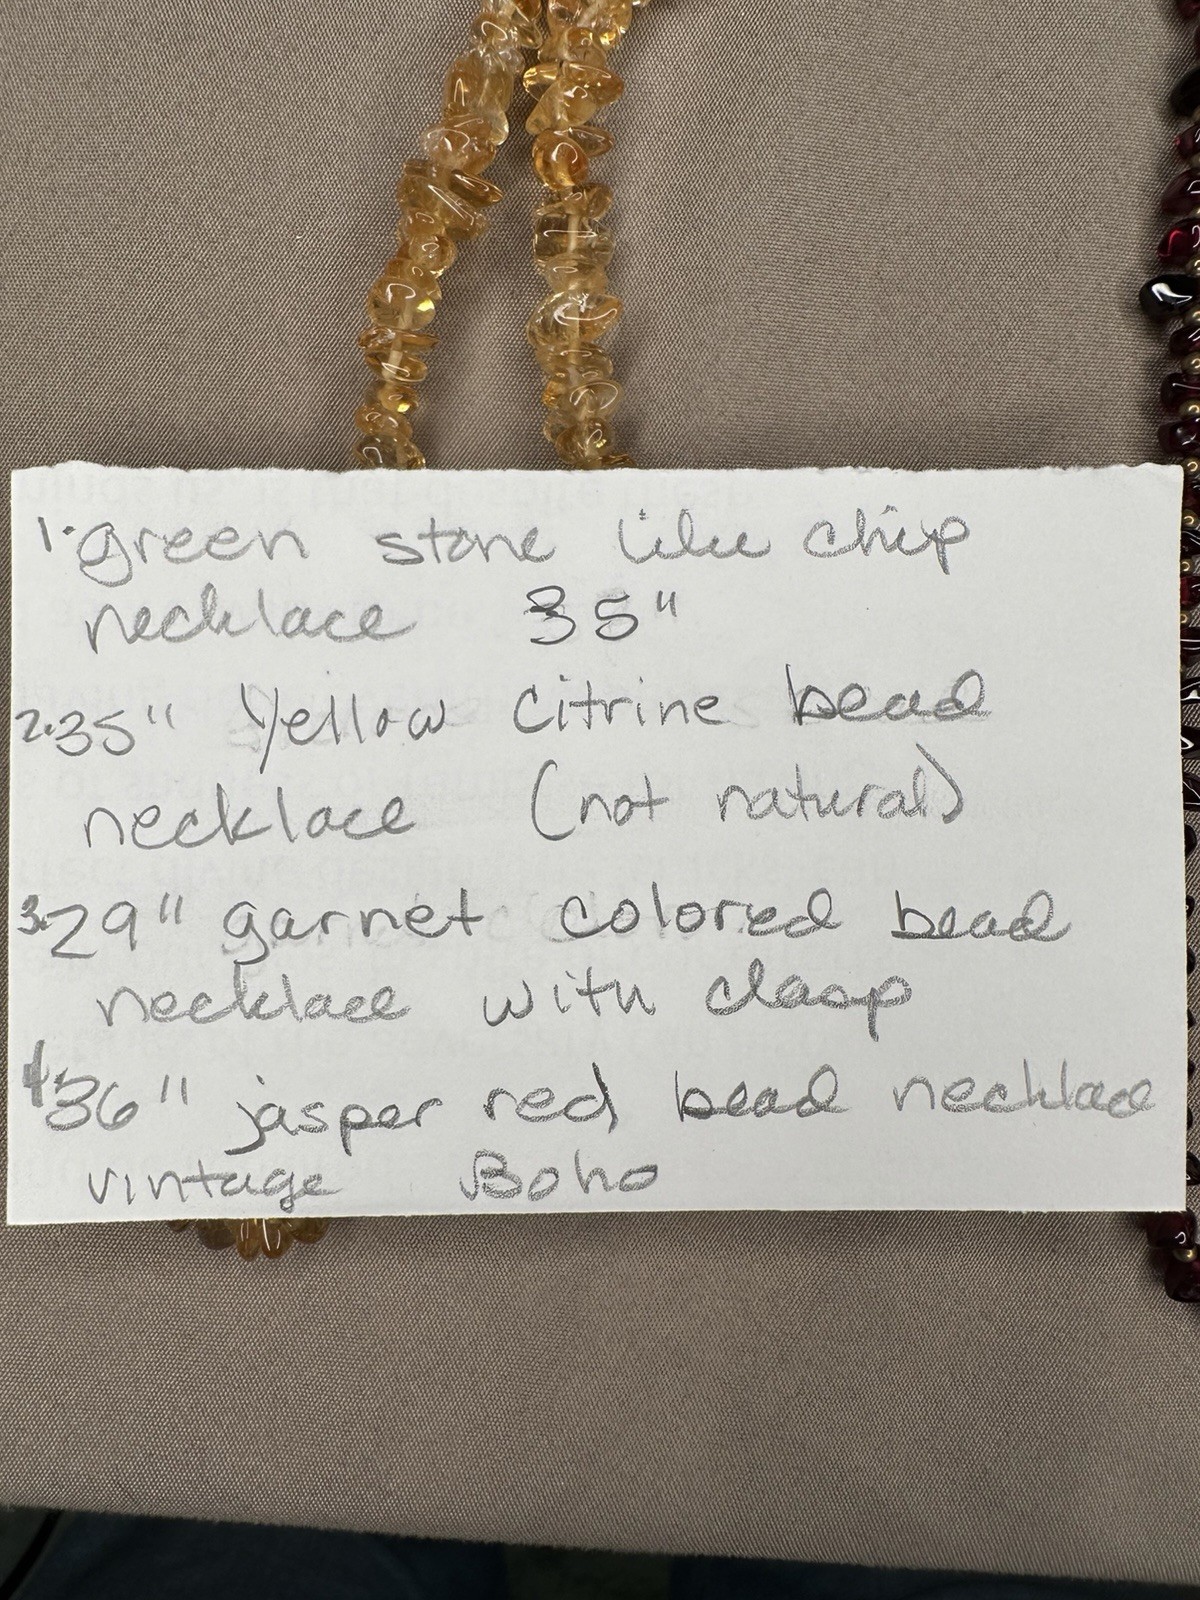 1. green stone like chip
necklace 35"
2. 35" Yellow citrine bead
necklace (not natural)
3. 29" garnet colored bead
necklace with clasp
4. 36" jasper red bead necklace
vintage Boho